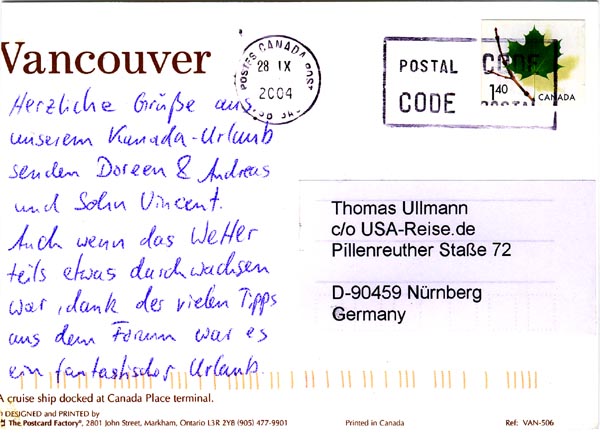 Vancouver
POSTES CANADA POST
28 IX
2004
POSTAL CODE
CODE POSTAL
1.40
CANADA
Herzliche Grüße aus
unserem Kanada-Urlaub
senden Doreen & Andreas
und Sohn Vincent.
Auch wenn das Wetter
teils etwas durchwachsen
war, dank der vielen Tipps
aus dem Forum war es
ein fantastischer Urlaub.
Thomas Ullmann
c/o USA-Reise.de
Pillenreuther Staße 72
D-90459 Nürnberg
Germany
A cruise ship docked at Canada Place terminal.
DESIGNED and PRINTED by
The Postcard Factory®, 2801 John Street, Markham, Ontario L3R 2Y8 (905) 477-9901
Printed in Canada
Ref: VAN-506